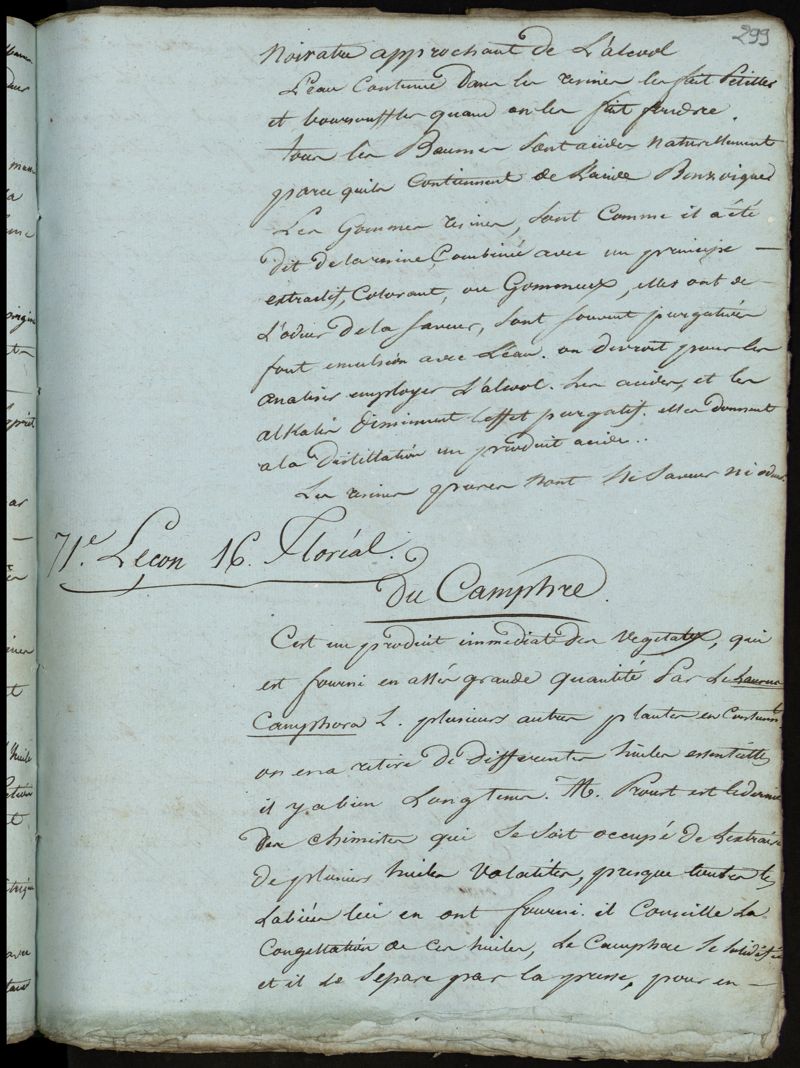 299
Noiratre approchant de L'alcool
L'eau Contenue Dans les resines les fait Petiller
et boursouffler quand on les fait fondre.
tous les Baumes sont acides Naturellement
parce quils Contiennent de L'acide Benzoique
Les Gommes resines, sont Comme il a été
dit de la resine Combiné avec un principe —
extractif, Colorant, ou Gommeux, elles ont de
L'odeur De la Saveur, sont souvent purgatives
font emulsion avec L'eau. on devroit pour les
analiser employer L'alcool. Les acides, et les
alkalis diminuent l'effet purgatif. elles donnent
a la distillation un produit acide..
Les resines pures n'ont Ni Saveur Ni odeur
71.e Leçon 16. Floréal.
Du Camphre.
C'est un produit immediat des Vegetaux, qui
est fourni en assés grande quantité Par Le Laurus
Camphora L. plusieurs autres plantes en Contienn.
on en a retiré de differentes huiles essentielles
il y a bien Longtems. M. Proust est le dernier
des chimistes qui se soit occupé de L'extraire
de plusieurs huiles Volatiles, presque toutes les
Labiées lui en ont fourni. il Conseille La
Congellation de ces huiles, Le Camphre se solidifie
et il le Separe par la presse, pour en —